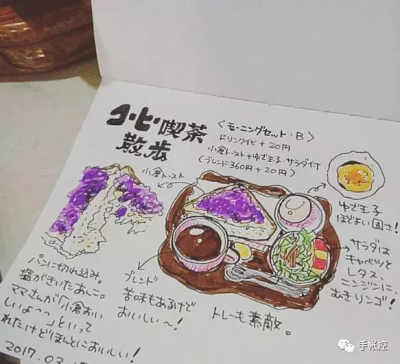 コーヒー喫茶
散歩
〈モーニングセット:B〉
ドリンク代+20円
小倉トースト+ゆで玉子・サラダ付
(ブレンド360円+20円)
小倉トースト
ゆで玉子
ほどよい固さ!
サラダは
キャベツと
レタス
ニンジンに
むきリンゴ!
パンに切り込み。
塩がきいたあんこ。
ママさんが「小倉おい
しいよ〜〜」といって
くれたけどほんとにおいしい!
ブレンド
苦味もあるけど
おいしい〜!
トレーも素敵。
2017.03
手帐控